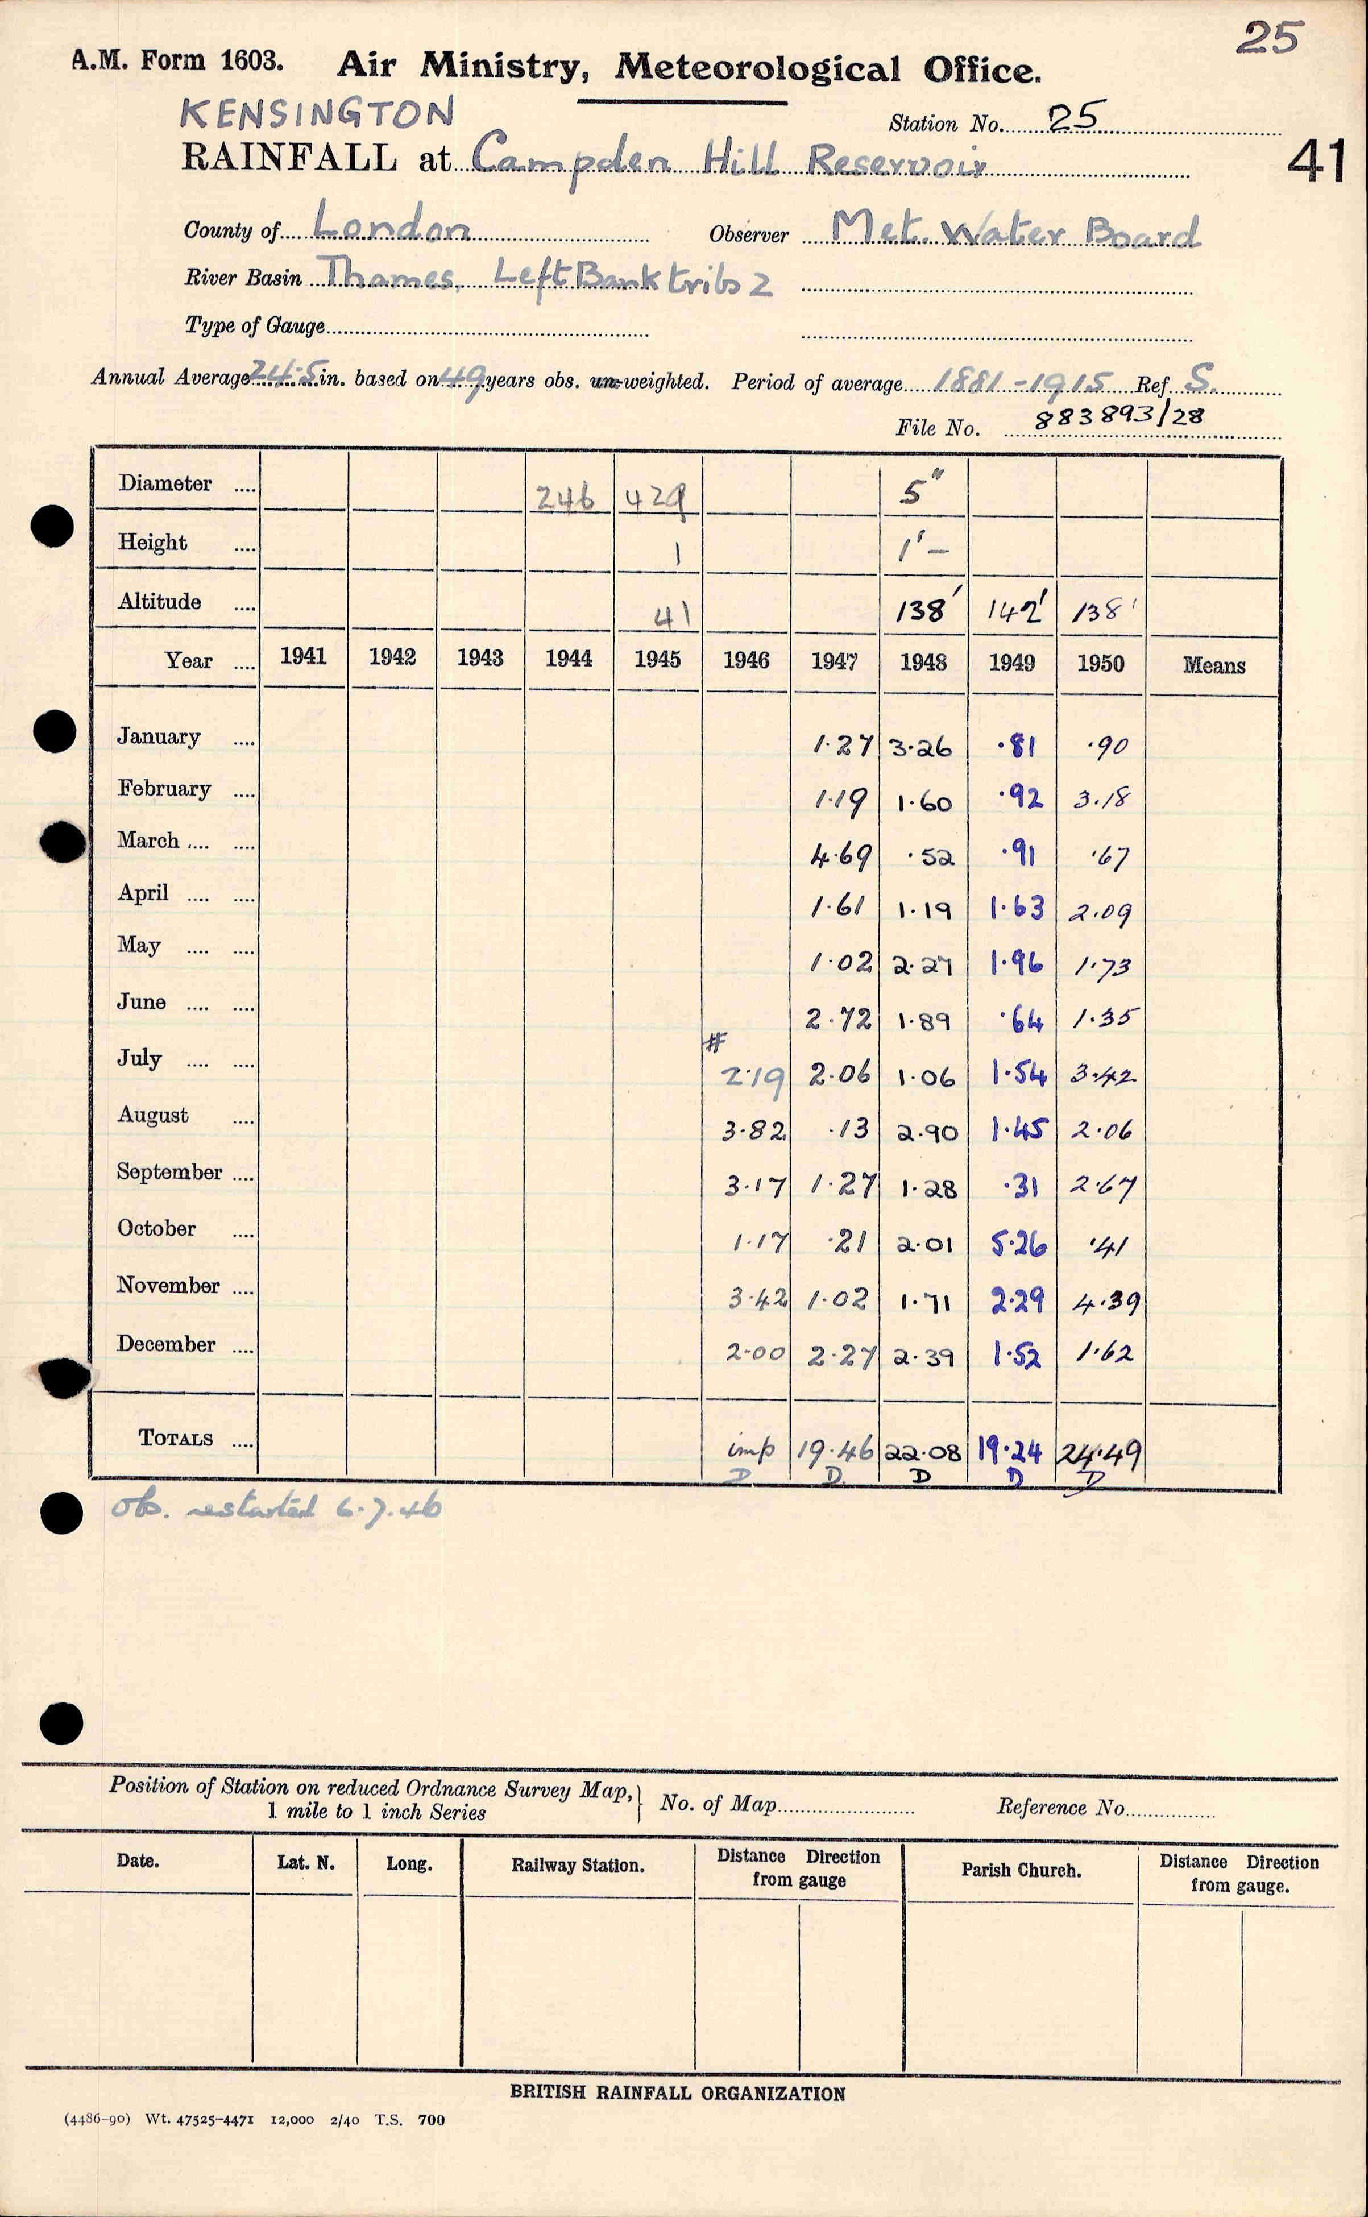 25
A.M. Form 1603. Air Ministry, Meteorological Office.
KENSINGTON
Station No. 25
RAINFALL at Campden Hill Reservoir
41
County of London Observer Met. Water Board
River Basin Thames. Left Bank tribs 2
Type of Gauge
Annual Average 24.5 in. based on 49 years obs. un-weighted. Period of average 1881-1915 Ref. S.
File No. 883893/28
Diameter .... 246 429 5"
Height .... 1 1'-
Altitude .... 41 138' 142' 138'
Year .... 1941 1942 1943 1944 1945 1946 1947 1948 1949 1950 Means
January .... 1.27 3.26 .81 .90
February .... 1.19 1.60 .92 3.18
March .... .... 4.69 .52 .91 .67
April .... .... 1.61 1.19 1.63 2.09
May .... .... 1.02 2.27 1.96 1.73
June .... .... 2.72 1.89 .64 1.35
#
July .... .... 2.19 2.06 1.06 1.54 3.42
August .... 3.82 .13 2.90 1.45 2.06
September .... 3.17 1.27 1.28 .31 2.67
October .... 1.17 .21 2.01 5.26 .41
November .... 3.42 1.02 1.71 2.29 4.39
December .... 2.00 2.27 2.39 1.52 1.62
TOTALS .... imp 19.46 22.08 19.24 24.49
D D D D D
Ob. restarted 6.7.46
Position of Station on reduced Ordnance Survey Map,} No. of Map Reference No.
1 mile to 1 inch Series
Date. Lat. N. Long. Railway Station. Distance Direction from gauge Parish Church. Distance Direction from gauge.
BRITISH RAINFALL ORGANIZATION
(4486-90) Wt. 47525-4471 12,000 2/40 T.S. 700